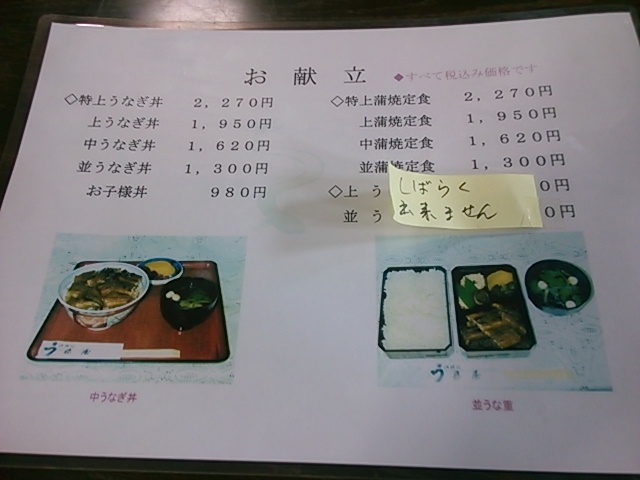 お献立
◆すべて税込み価格です
◇特上うなぎ丼 2,270円
上うなぎ丼 1,950円
中うなぎ丼 1,620円
並うなぎ丼 1,300円
お子様丼 980円
◇特上蒲焼定食 2,270円
上蒲焼定食 1,950円
中蒲焼定食 1,620円
並蒲焼定食 1,300円
◇上う 0円
並う 0円
しばらく
出来ません
中うなぎ丼
並うな重